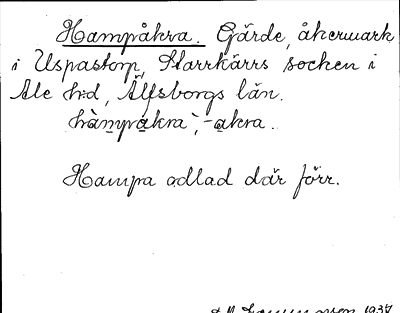 Hampåkra. Gärde, åkermark
i Uspastorp, Starrkärrs socken i
Ale hd, Älfsborgs län.
hàmpakra`, -akra.
Hampa odlad där förr.
1937